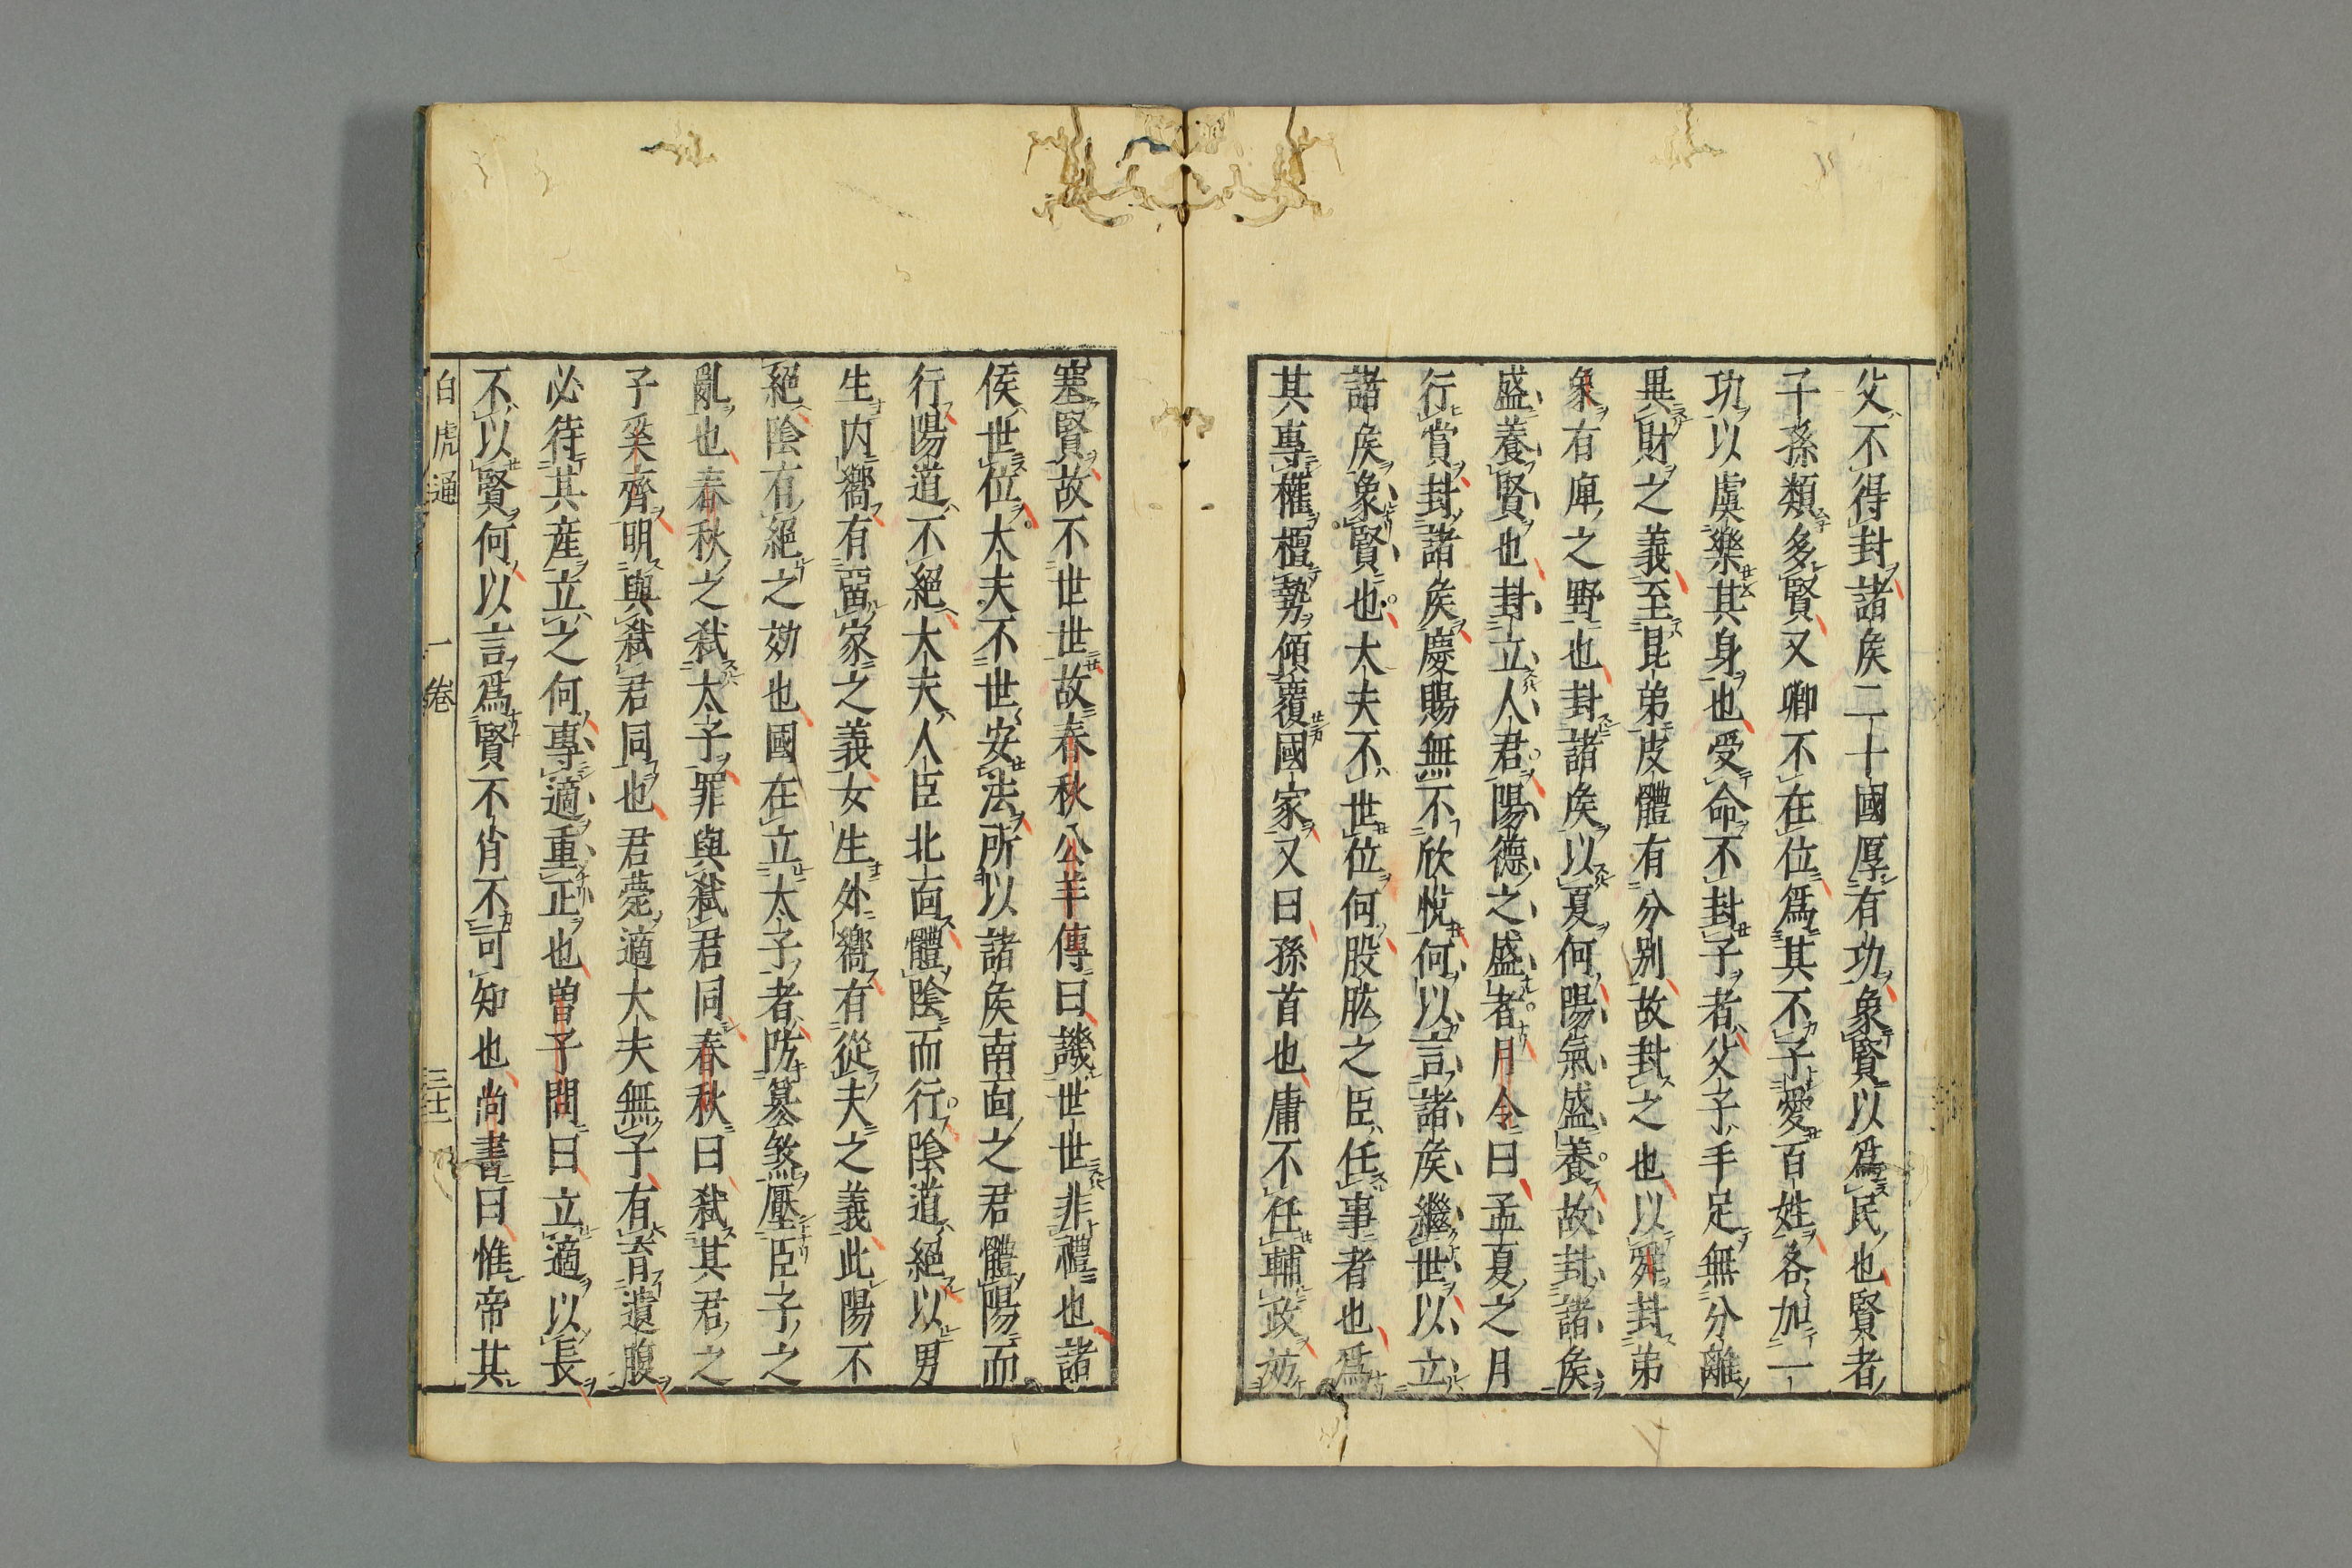 父不得封諸矦二十國厚有功象賢以爲民也賢者
子孫類多賢又卿不在位爲其不子愛百姓各加一
功以虞樂其身也受命不封子者父子手足無分離
異財之義至昆弟皮體有分別故封之也以舜封弟
象有庳之野也封諸矦以夏何陽氣盛養故封諸矦
盛養賢也封立人君陽德之盛者月令曰孟夏之月
行賞封諸矦慶賜無不欣悅何以言諸矦繼世以立
諸矦象賢也大夫不世位何股肱之臣任事者也爲
其專權擅勢傾覆國家又曰孫首也庸不任輔政妨
塞賢故不世世故春秋公羊傳曰譏世世非禮也諸
侯世位大夫不世安法所以諸矦南面之君體陽而
行陽道不絕大夫人臣北面體陰而行陰道絕以男
生内嚮有畱家之義女生外嚮有從夫之義此陽不
絕陰有絕之效也國在立太子者防篡煞壓臣子之
亂也春秋之弑太子罪與弑君同春秋曰弑其君之
子奚齊明與弑君同也君薨適大夫無子有育遺腹
必待其産立之何專適重正也曾子問曰立適以長
不以賢何以言爲賢不肖不可知也尚書曰惟帝其
白虎通 一卷 三十二